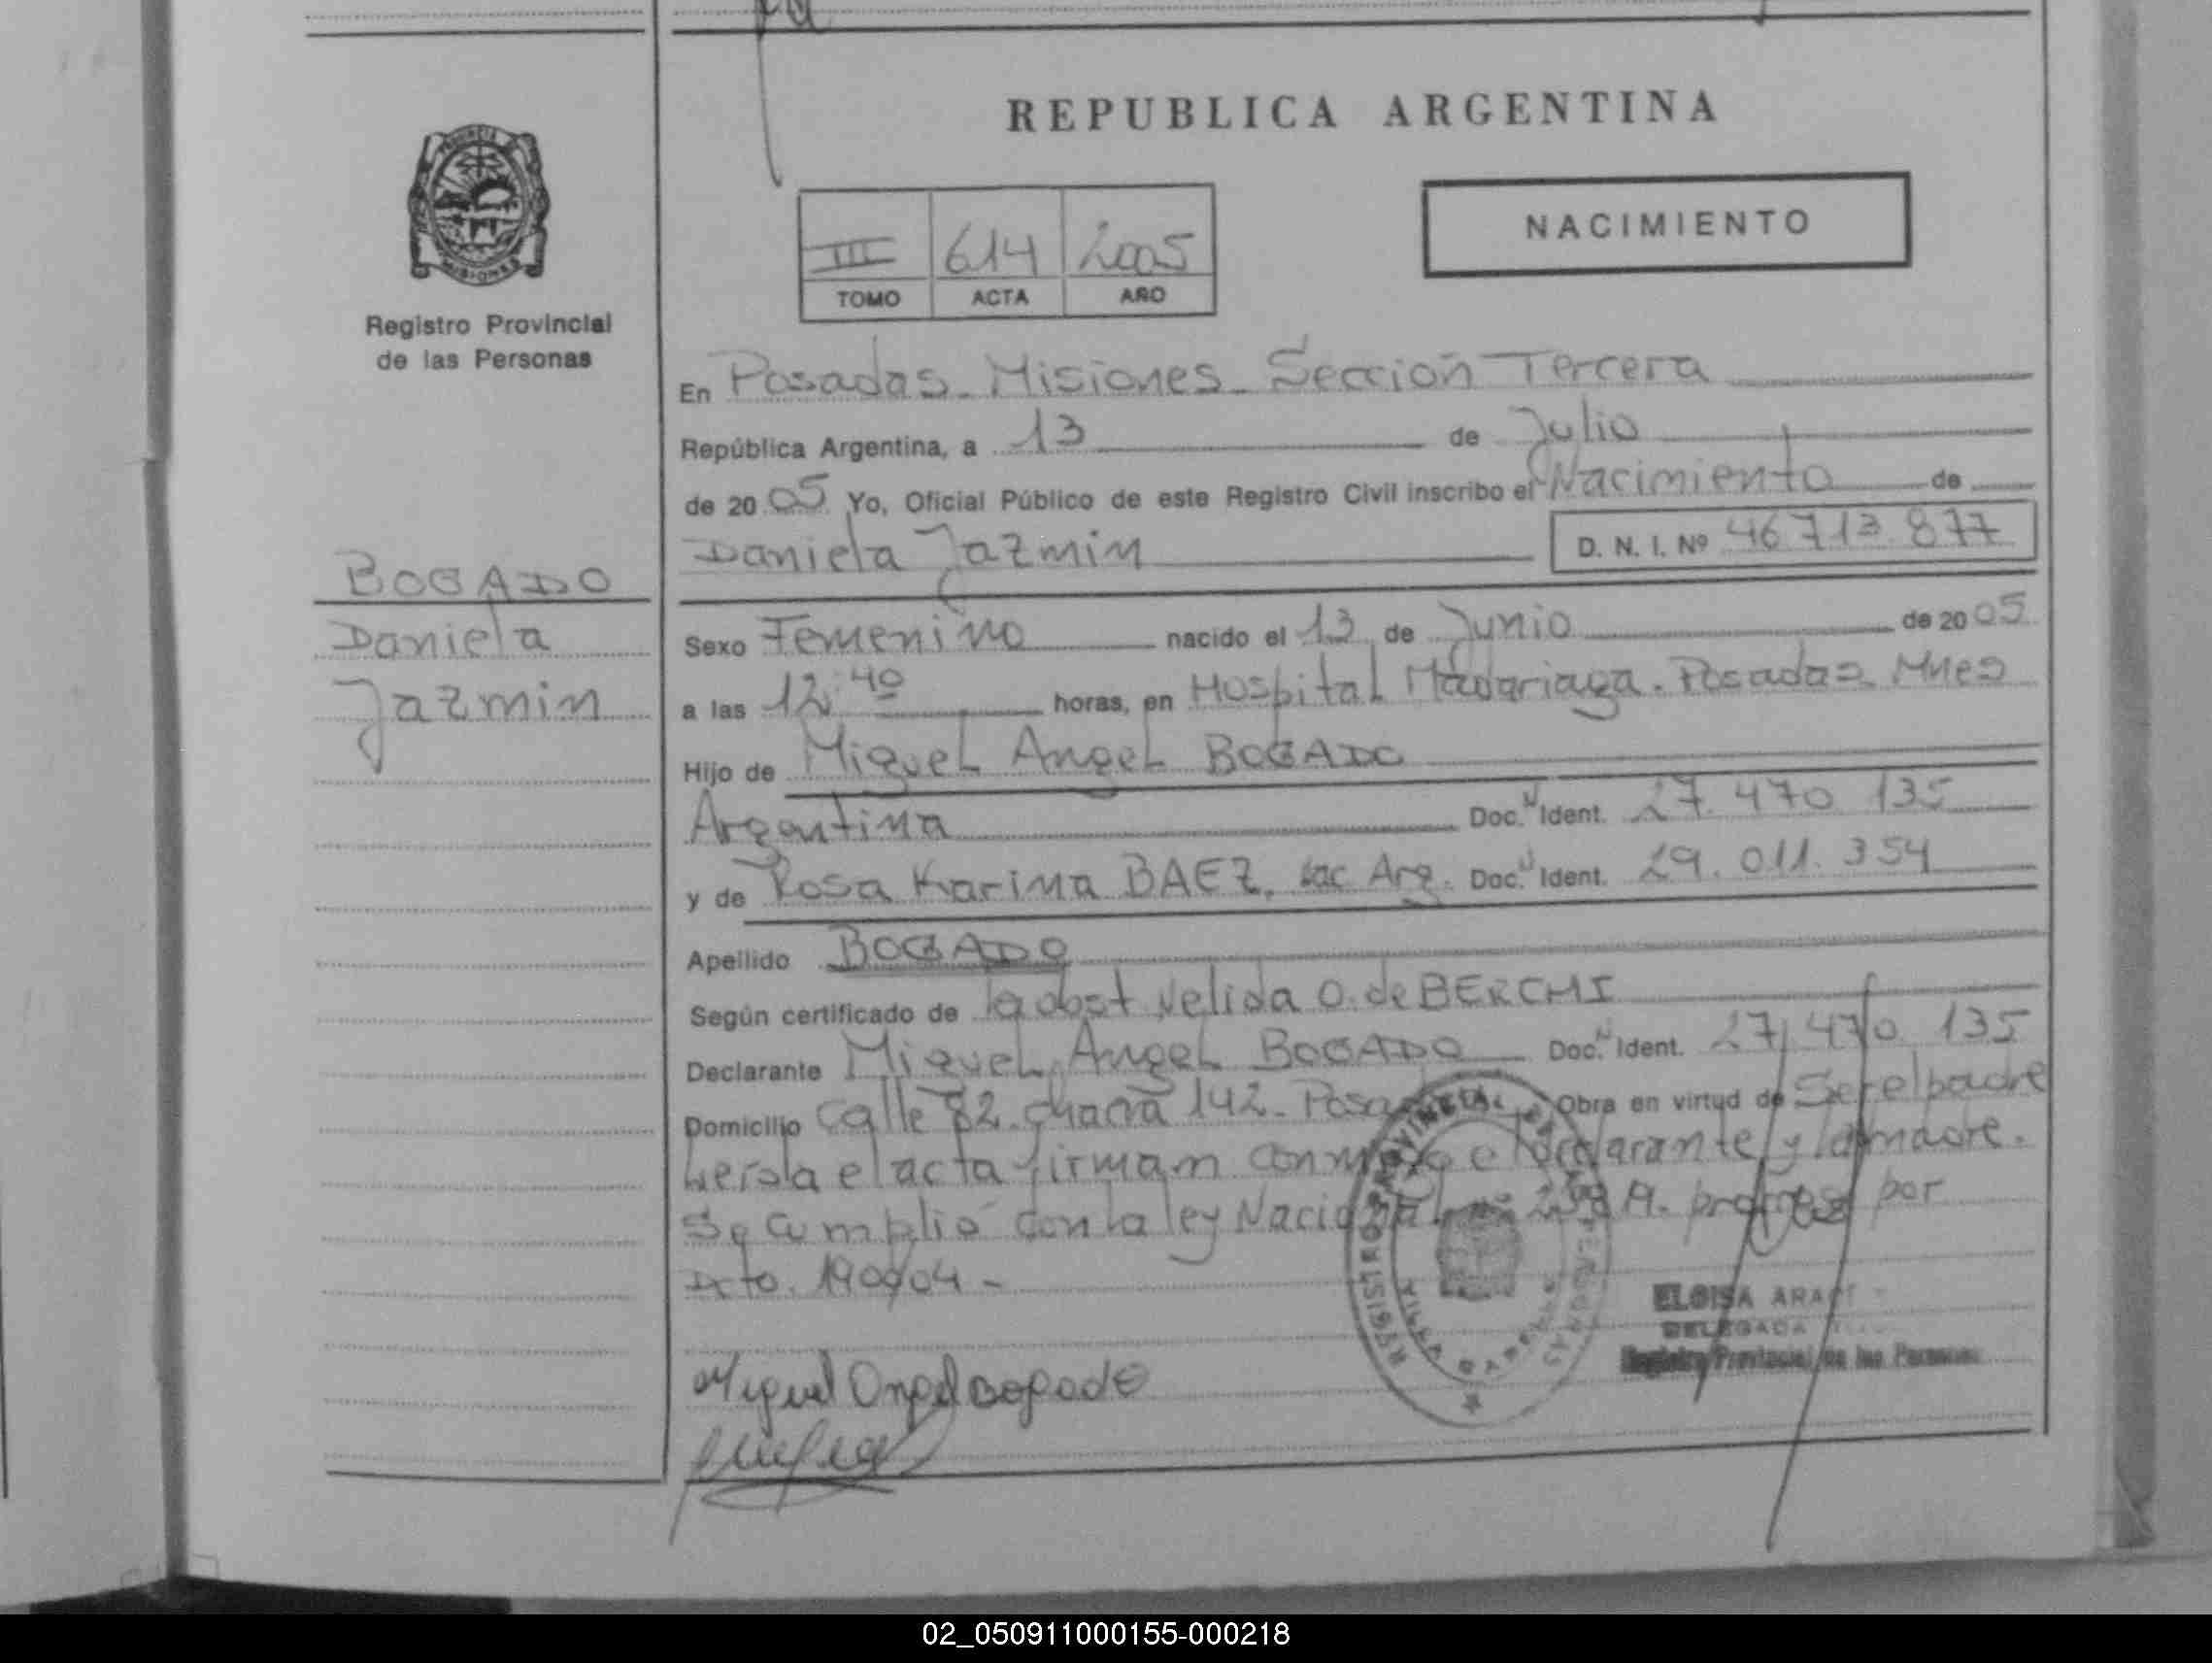 REPUBLICA ARGENTINA
PROVINCIA
MISIONES
Registro Provincial
de las Personas
NACIMIENTO
III 614 2005
TOMO ACTA AÑO
En Posadas. Misiones. Sección Tercera
República Argentina, a 13 de Julio
de 2005 Yo, Oficial Público de este Registro Civil inscribo el Nacimiento de
Daniela Jazmin D. N. I. Nº 46 713 877
BOGADO
Daniela
Jazmin
Sexo Femenino nacido el 13 de Junio de 2005
a las 12:40 horas, en Hospital Madariaga. Posadas. Mnes
Hijo de Miguel Angel BOGADO
Argentina Doc. N Ident. 27. 470 135
y de Rosa Karina BAEZ, nac Arg. Doc. N Ident. 29. 011. 354
Apellido BOGADO
Según certificado de la obst Nelida O. de BERCHI
Declarante Miguel Angel BOGADO Doc. N Ident. 27 470 135
Domicilio Calle 82. chacra 142. Posadas Obra en virtud de Ser el padre
Leída el acta firman conmigo el declarante y la madre.
Se cumplió con la ley Nacional por
Dcto. 190/04 -
REGISTRO PROVINCIAL DE LAS PERSONAS
VILLA CABELLO
ELOISA
DELEGADA
Registro Provincial de las Personas
Miguel Angel Bogado
02_050911000155-000218